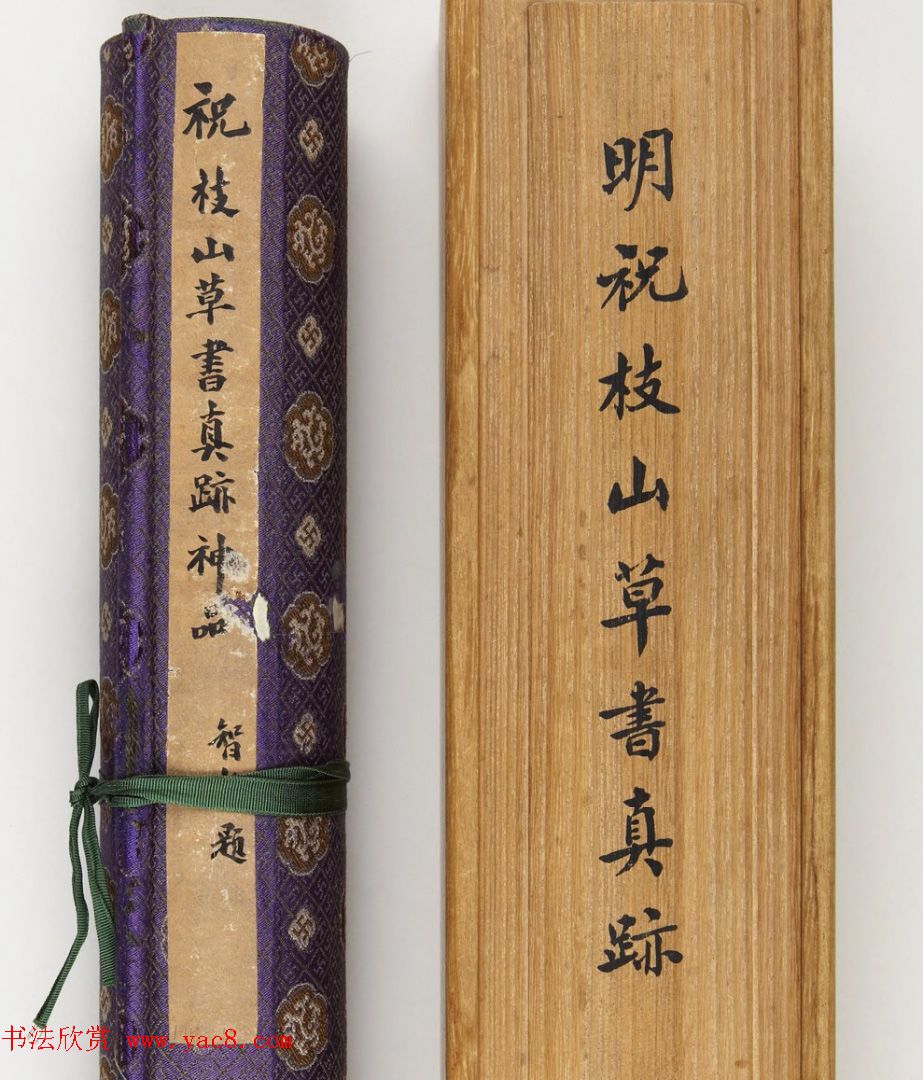 明祝枝山草書真跡
祝枝山草書真跡神品
智
題
书法欣赏 www.yac8.com